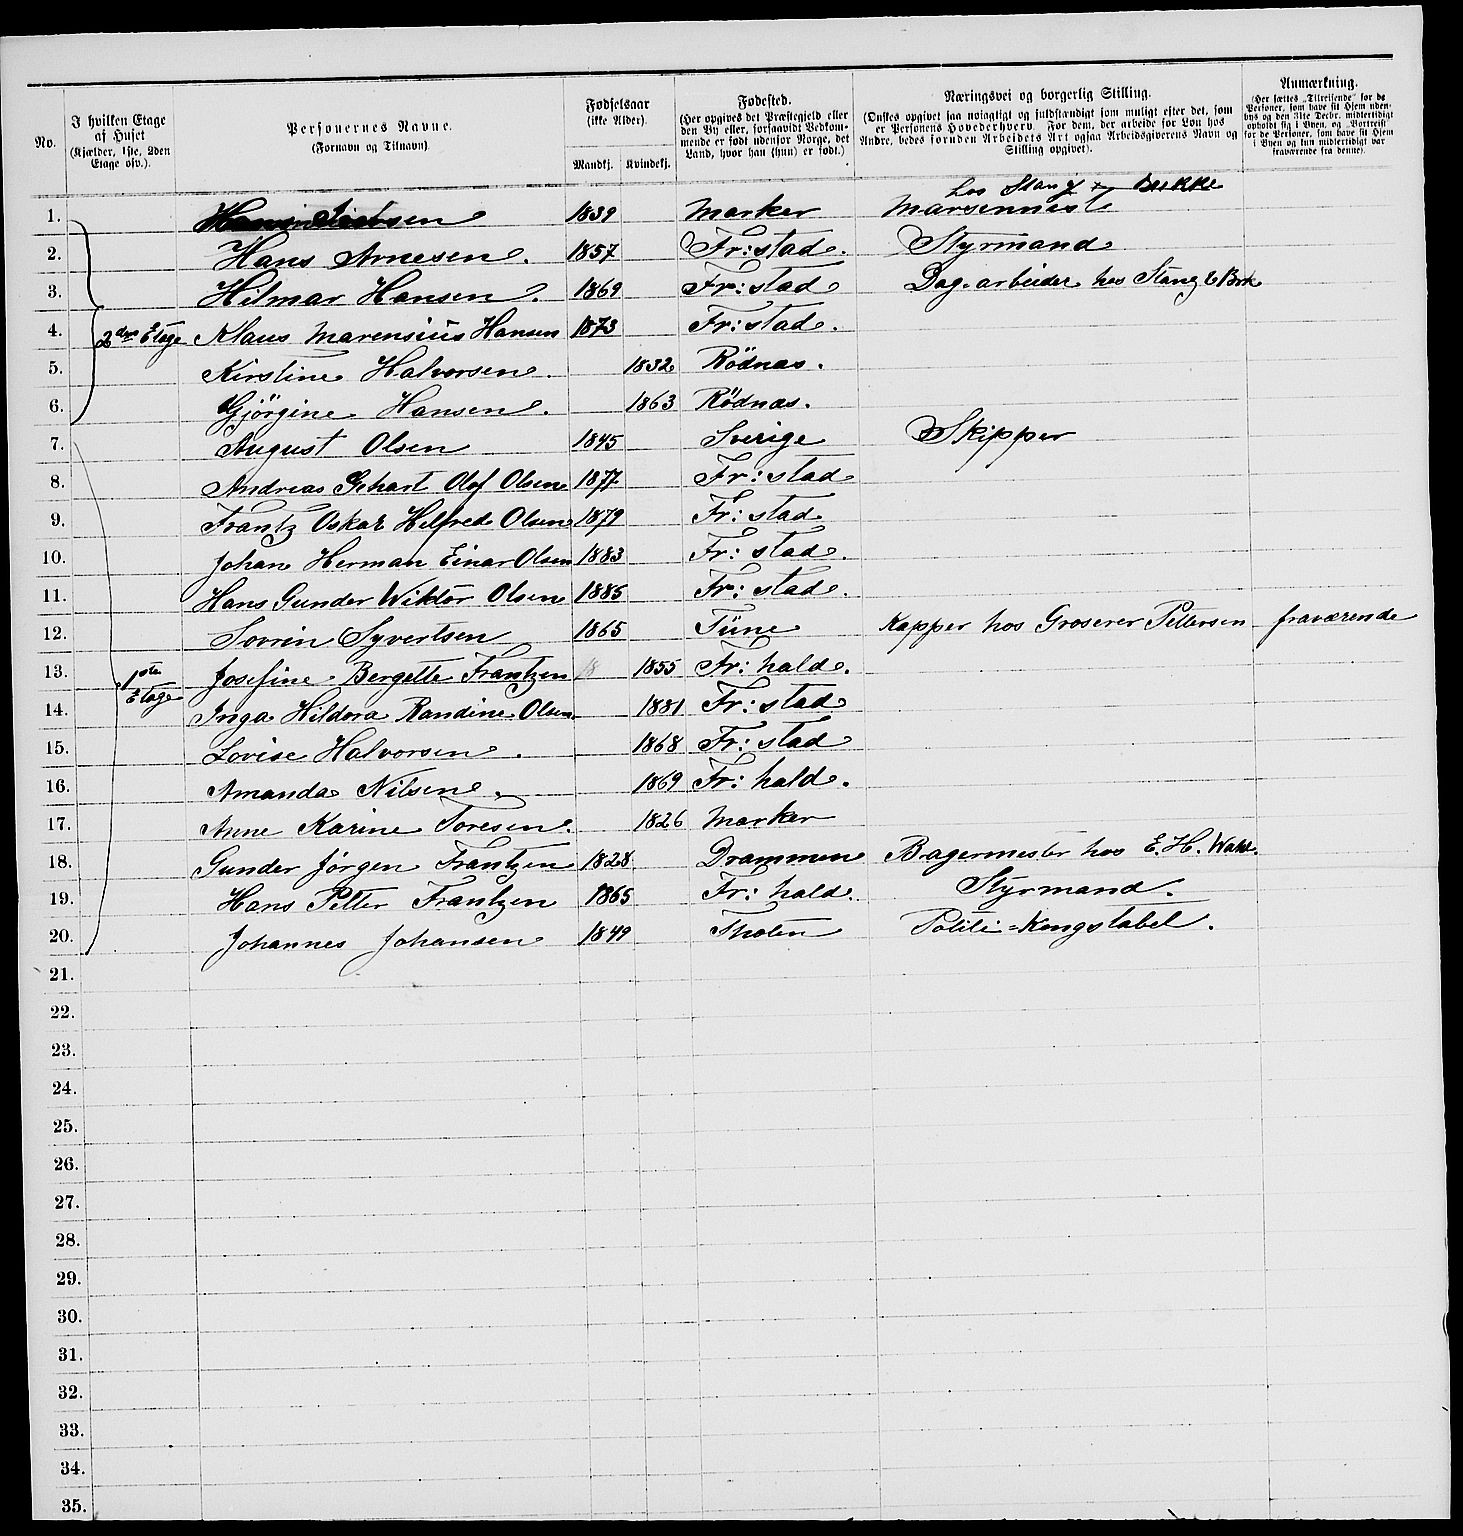 No.
I hvilken Etage af Huset (Kjælder, 1ste, 2den Etage osv.).
Personernes Navne. (Fornavn og Tilnavn).
Fødselsaar (ikke Alder).
Mandkj. Kvindekj.
Fødested. (Her opgives det Præstegjeld eller den By eller, forsaavidt Vedkommende er født udenfor Norge, det Land, hvor han (hun) er født.)
Næringsvei og borgerlig Stilling. (Ønskes opgivet saa nøiagtigt og fuldstændigt som muligt efter det, som er Personens Hovederhverv. For dem, der arbeide for Løn hos Andre, bedes foruden Arbeidets Art ogsaa Arbeidsgiverens Navn og Stilling opgivet).
Anmærkning. (Her sættes „Tilreisende" for de Personer, som have sit Hjem udenbys og den 31te Decbr. midlertidigt opholdt sig i Byen, og „Bortreist" for de Personer, som have sit Hjem i Byen og kun midlertidigt var fraværende fra denne).
hos Stang &
1. 1839 Marker
2. Hans Arnesen. 1857 Fr:stad. Styrmand
3. Hilmar Hansen. 1869 Fr:stad Dag-arbeider hos Stang &
4. 2den Etage Klaus Marensius Hansen 1873 Fr:stad.
5. Kirstine Halvorsen. 1832 Rödnæs.
6. Gjörgine Hansen. 1863 Rödnæs.
7. August Olsen 1845 Sverige Skipper
8. Andreas Gehart Olof Olsen 1877 Fr: stad
9. Frantz Oskar Helfred Olsen 1879 Fr: stad
10. Johan Herman Einar Olsen 1883 Fr: stad.
11. Hans Gunder Wiktor Olsen 1885 Fr: stad.
12. Sovrin Syvertsen 1865 Tüne Kapper hos Groserer Pettersen fraværende
13. 1ste Etage Josefine Bergette Frantzen 18 1855 Fr: hald.
14. Inga Hildora Randine Olsen 1881 Fr: stad
15. Lovise Halvorsen. 1868 Fr: stad
16. Amanda Nilsen. 1869 Fr: hald.
17. Anne Karine Toresen. 1826 Marker
18. Gunder Jørgen Frantzen 1828 Drammen Bagermester hos E. H.
19. Hans Petter Frantzen 1865 Fr: hald. Styrmand.
20. Johannes Johansen 1849 Thoten Politi=Kongstabel.
21.
22.
23.
24.
25.
26.
27.
28.
29.
30.
31.
32.
33.
34.
35.